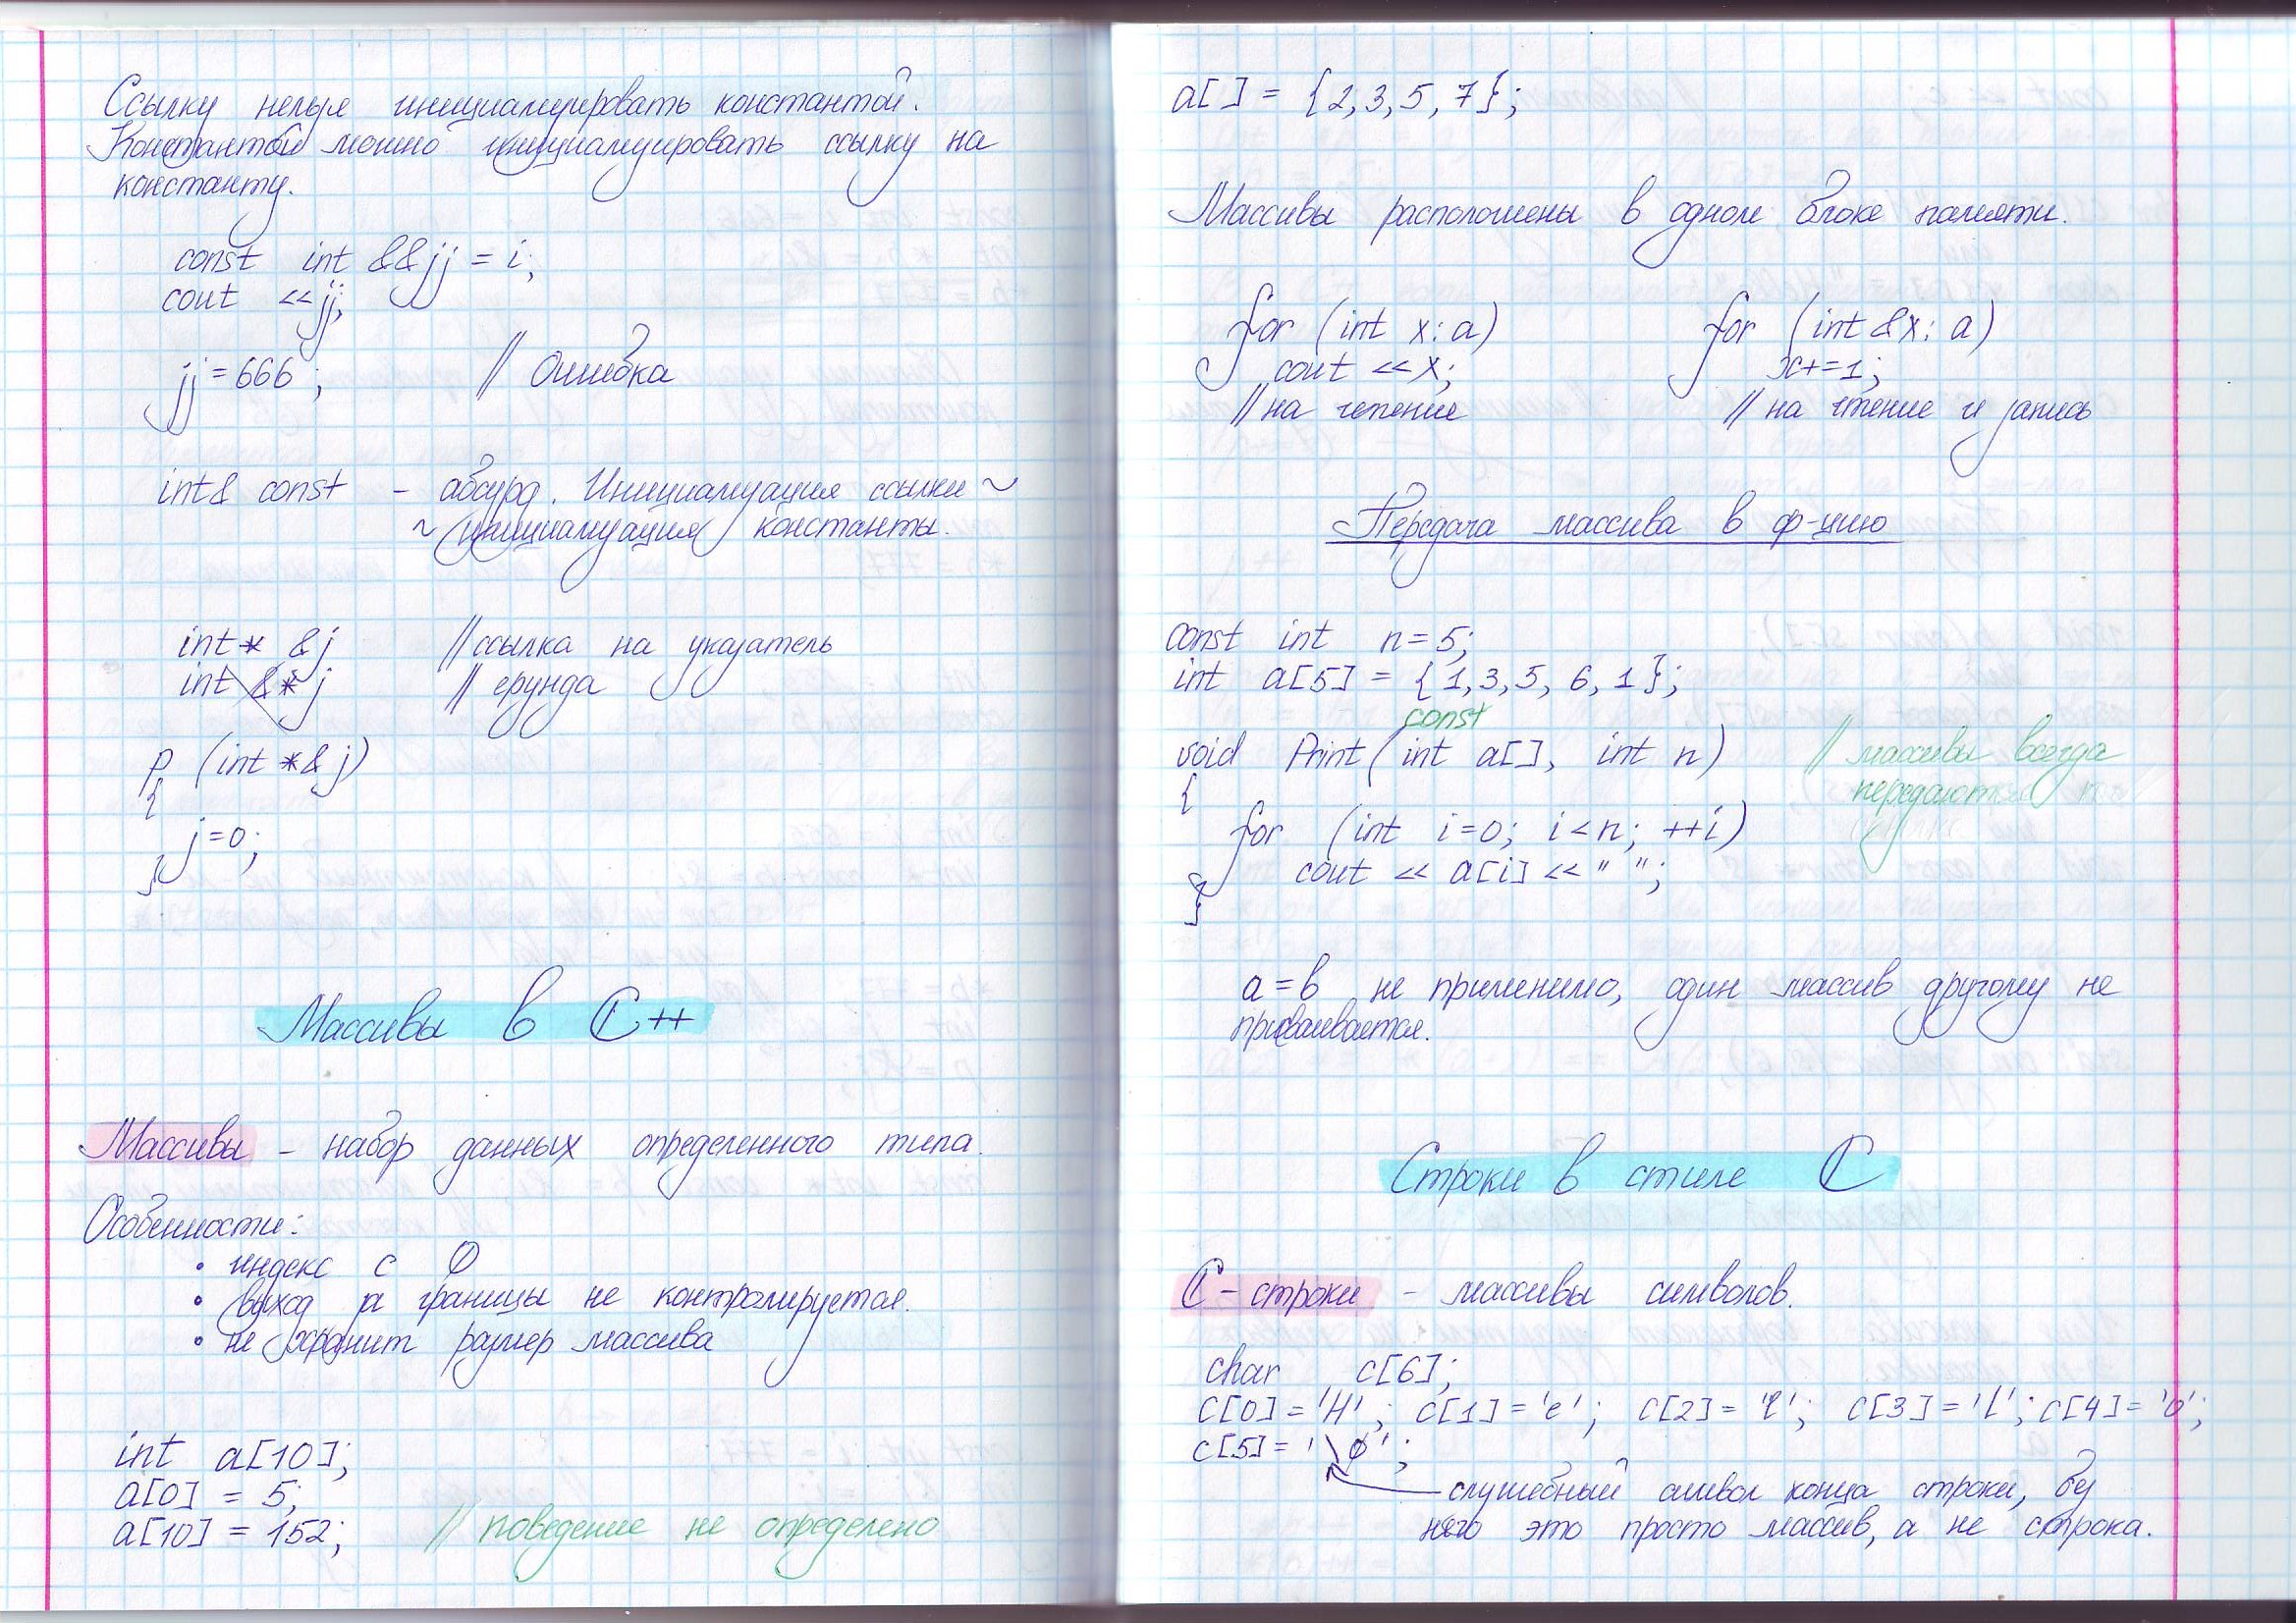 Ссылку нельзя инициализировать константой.
Константой можно инициализировать ссылку на
константу.
const int &&jj = i;
cout <<jj;
jj = 666 ; // Ошибка
int& const - абсурд. Инициализация ссылки ~
~ инициализация константы.
int* &j // ссылка на указатель
int &* j // ерунда
p (int *& j)
{
j=0;
}
Массивы в C++
Массивы - набор данных определенного типа.
Особенности:
• индекс с 0
• выход за границы не контролируется.
• не хранит размер массива
int a[10];
a[0] = 5;
a[10] = 152; // поведение не определено
a[] = {2, 3, 5, 7};
Массивы расположены в одном блоке памяти.
for (int x: a) for (int &x: a)
cout << x; x+=1;
// на чтение // на чтение и запись
Передача массива в ф-цию
const int n=5;
int a[5] = {1, 3, 5, 6, 1};
const
void Print (int a[], int n) // массивы всегда
{ передаются
for (int i=0; i<n; ++i)
cout << a[i] << " ";
}
a = b не применимо, один массив другому не
присваивается.
Строки в стиле C
C - строки - массивы символов.
char c[6];
c[0] = 'H'; c[1] = 'e'; c[2] = 'l'; c[3] = 'l'; c[4] = 'o';
c[5] = '\0';
служебный символ конца строки, без
него это просто массив, а не строка.